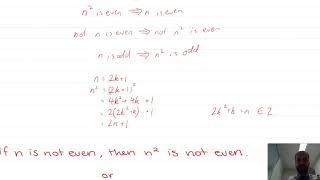 n² is even ⇒ n is even
not n is even ⇒ not n² is even
n is odd ⇒ n² is odd
n = 2k+1
n² = (2k+1)²
= 4k² + 4k + 1
= 2(2k²+k) + 1 2k²+k = n ∈ ℤ
= 2n+1
if n is not even, then n² is not even.
or